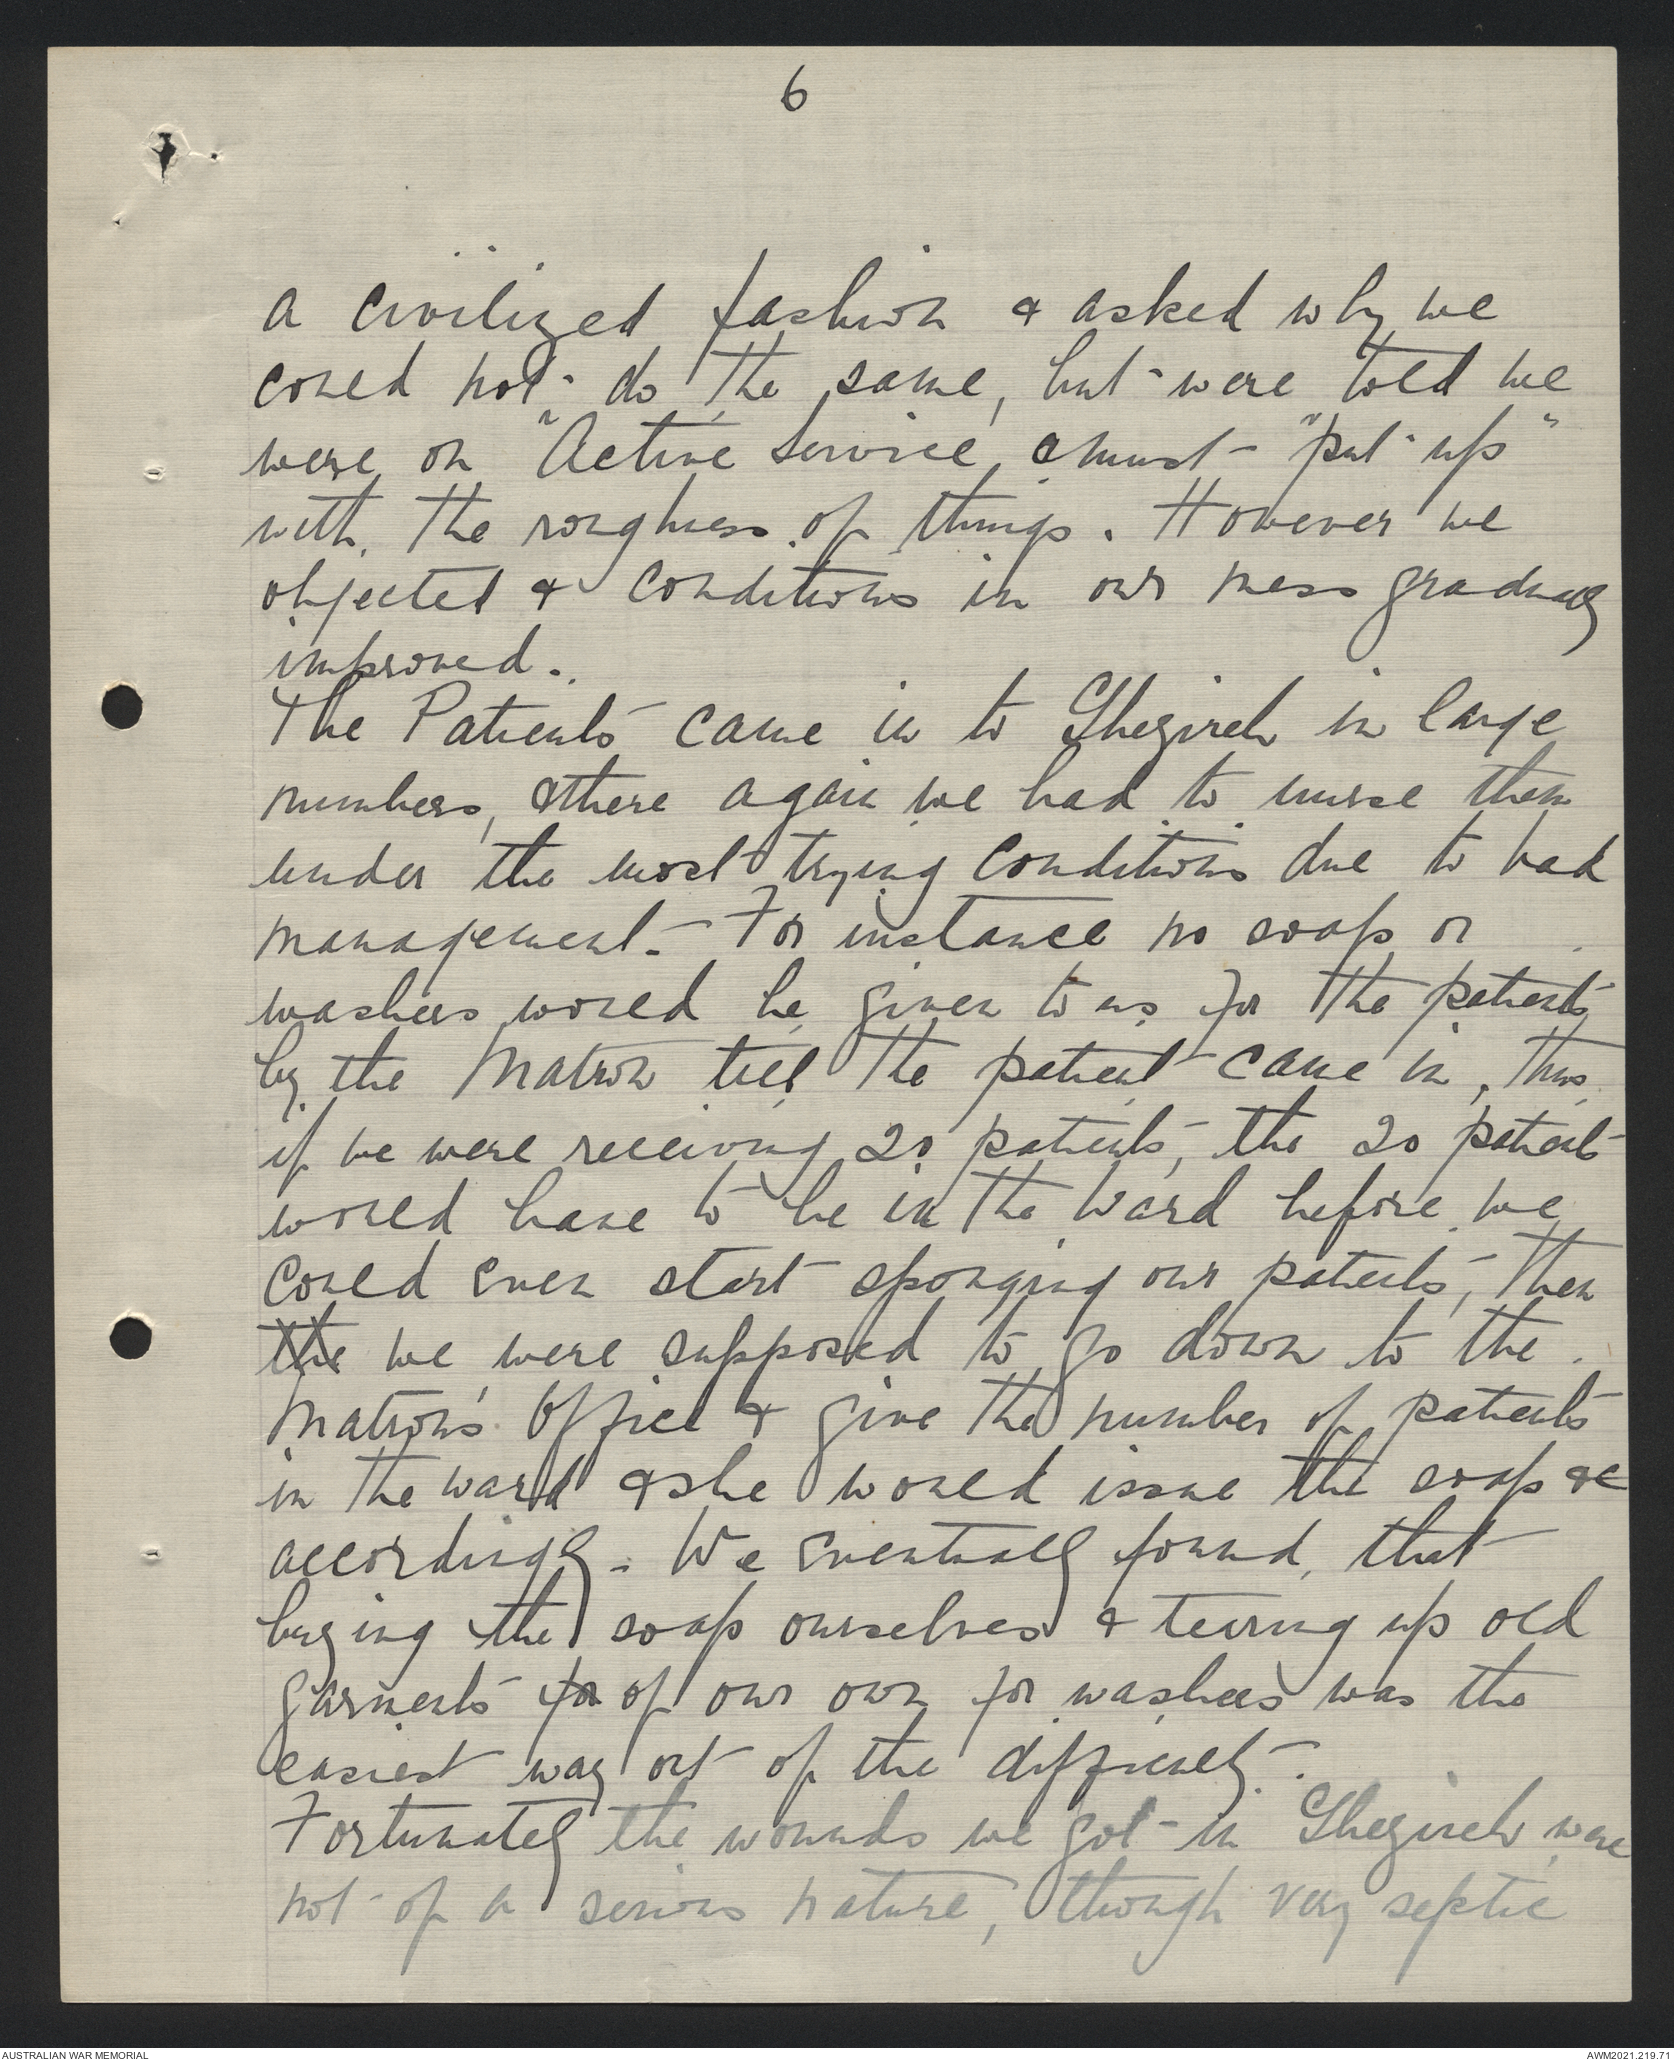 6
a civilized fashion & asked why we
could not do the same, but were told we
were on "Active Service, & must "put up"
with the roughness of things. However we
objected & conditions in our mess gradually
improved.
The Patients came in to Ghezireh in large
numbers, & there again we had to nurse them
under the most trying conditions due to bad
management. For instance no soap or
washers would be given to us for the patients
by the Matron till the patient came in, thus
if we were receiving 20 patients, the 20 patients
would have to be in the Ward before we
could even start sponging our patients, then
the we were supposed to go down to the
Matron's Office & give the number of patients
in the ward & she would issue the soap &c
accordingly. We eventually found, that
buying the soap ourselves & tearing up old
garments for of our own for washers was the
easiest way out of the difficulty.
Fortunately the wounds we got in Ghezireh were
not of a serious nature, though very septic
AUSTRALIAN WAR MEMORIAL
AWM2021.219.71